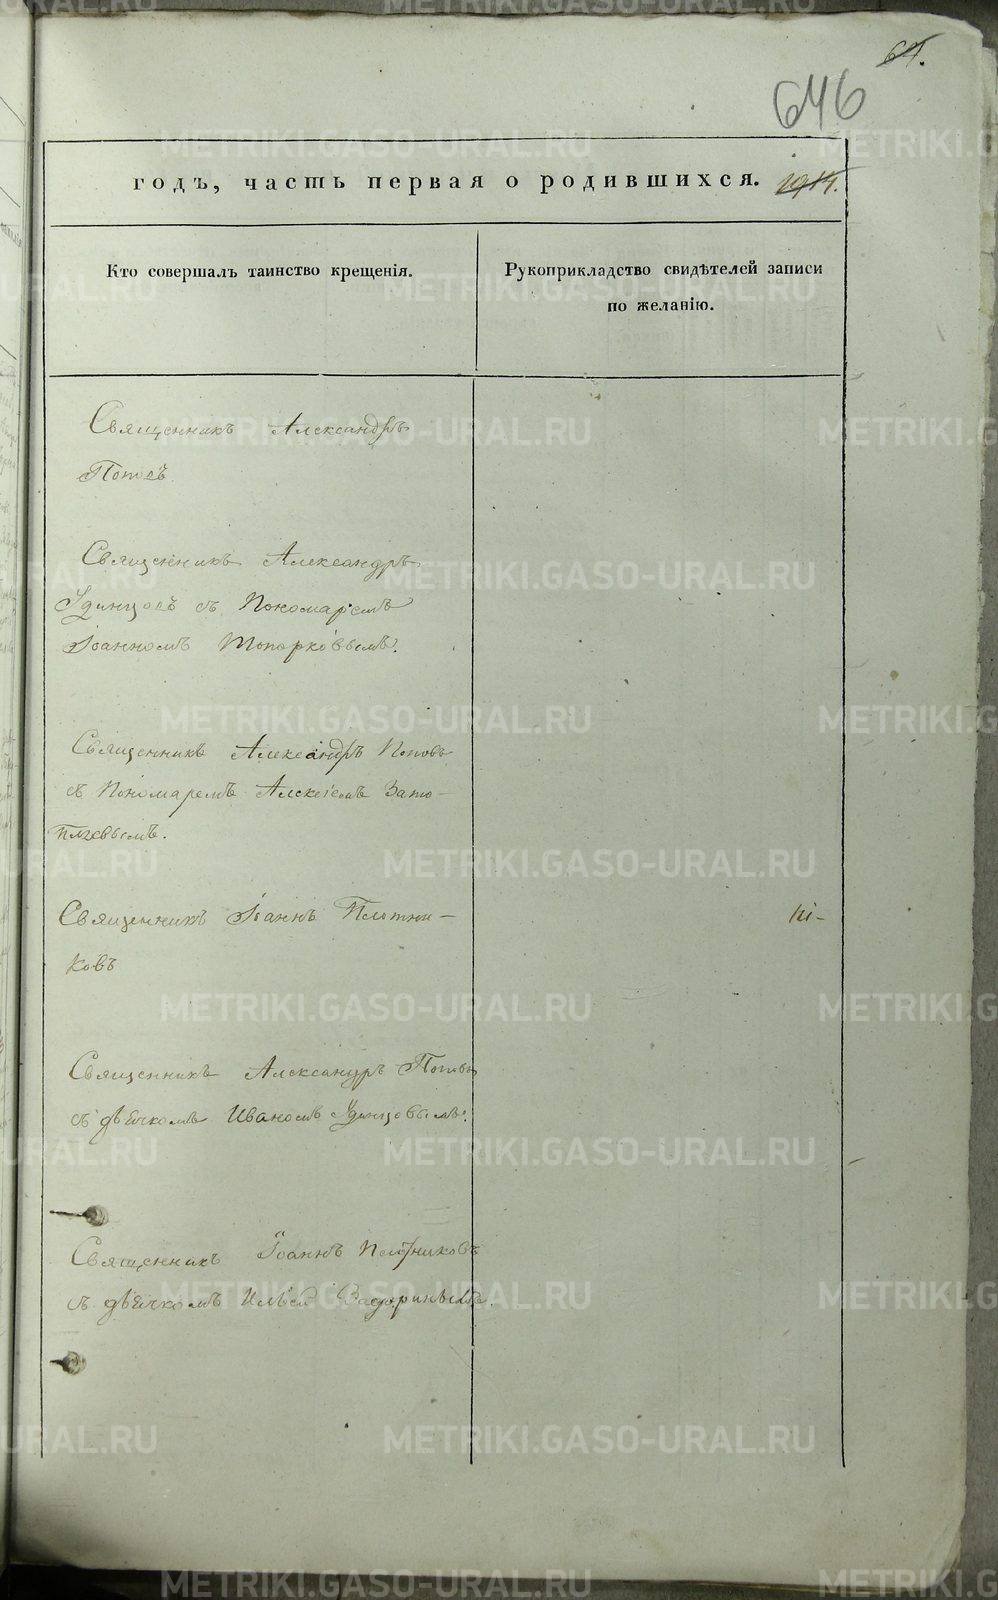 64.
646
годъ, часть первая о родившихся. 1914.
Кто совершалъ таинство крещенія.
Рукоприкладство свидѣтелей записи
по желанію.
Священникъ Александръ
Попов
Священникъ Александръ
Удинцовъ съ Пономаремъ
Іоанномъ Топорковымъ.
Священникъ Александръ Поповъ
съ Пономаремъ Алексѣемъ Зато-
пляевымъ.
Священникъ Іоаннъ Плотни-
ковъ
Священникъ Александръ Поповъ
съ дьячкомъ Иваномъ Удинцовымъ.
Священникъ Іоаннъ Плотниковъ
съ дьячкомъ Ильей
METRIKI.GASO-URAL.RU